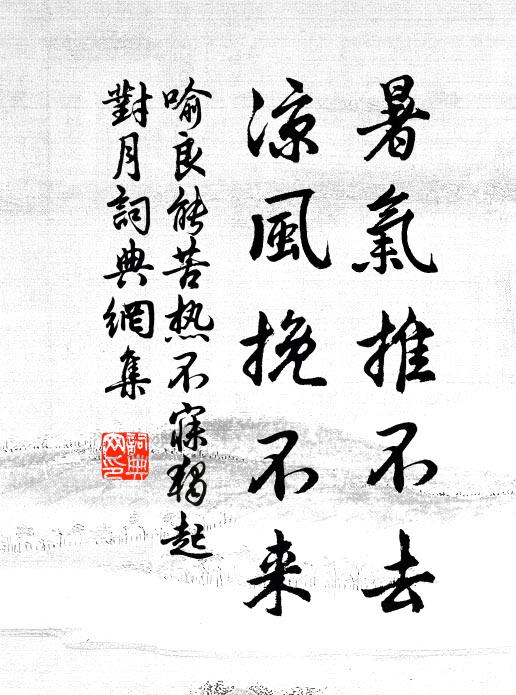 暑氣推不去
凉風挽不来
喻良能苦热不寐独起
對月詞典網集
詞典网印